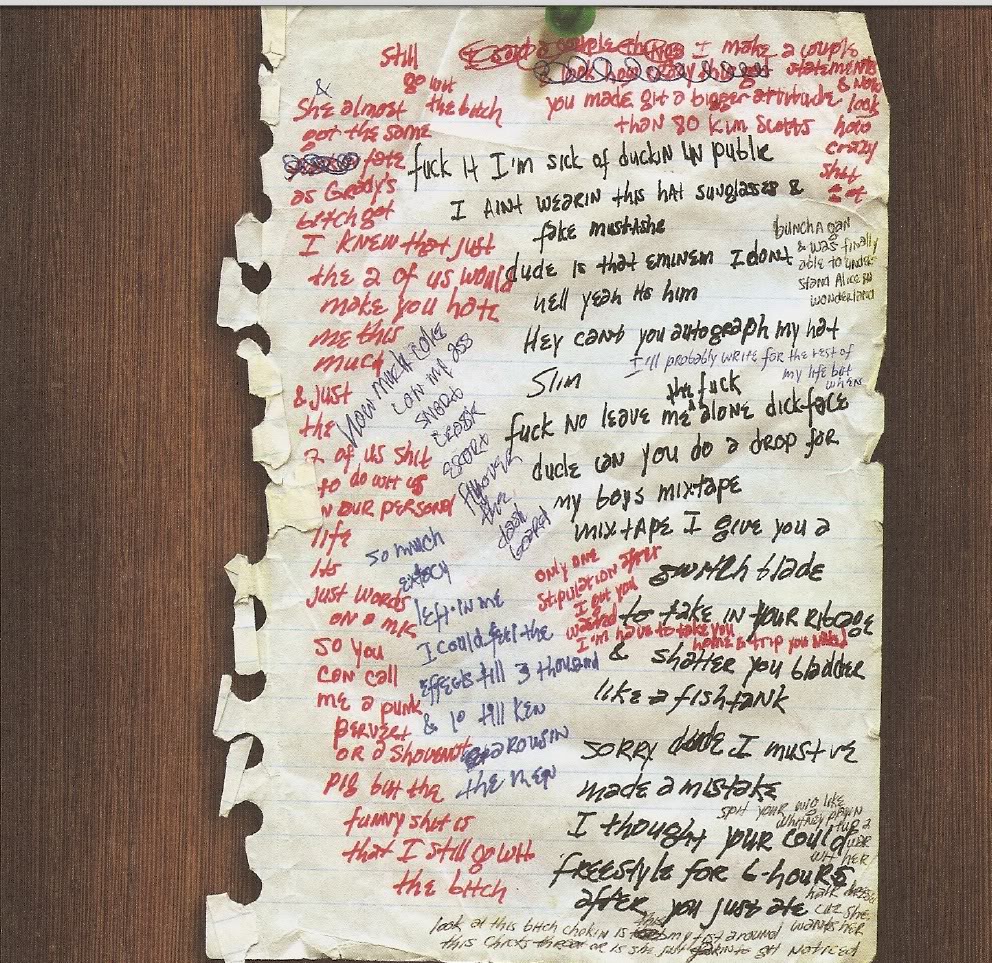 I said a couple things I make a couple
look how crazy this got statements
& now
you made git a bigger attitude look
than 80 Kim Scotts how
crazy
shit
got
Still
go wit
the bitch
&
She almost
got the same
fate
as Grady's
bitch got
I knew that just
the 2 of us would
make you hate
me this
much
& just
the
2 of us shit
to do wit us
in our personal
life
its
just words
on a mic
so you
can call
me a punk
pervert
or a shovenist
pig but the
funny shit is
that I still go wit
the bitch
How much coke
can my ass
snort
crack
escort
All over
the
dash
board
so much
extacy
left in me
I could feel the
effects till 3 thousand
& 10 till Ken
arousin
the men
fuck it I'm sick of duckin in public
I aint wearin this hat sunglasses &
fake mustashe
dude is that eminem I dont
hell yeah its him
Hey cant you autograph my hat
Slim
the fuck
fuck no leave me ^ alone dickface
dude can you do a drop for
my boys mixtape
mixtape I give you a
swith blade
to take in your ribcage
& shatter you bladder
like a fishtank
sorry dude I must ve
made a mistake
I thought your could
freestyle for 6-hours
after you just ate
bunch a
& was finally
able to under
stand Alice in
wonderland
I ill probably write for the rest of
my life but
when
only one
stipulation after
I got you
wasted
I'm have to take you
home & trip you naked
spit your wig like
whitney
tup a
war
wit her
hair dresser
cuz she
wants her
look at this bitch chokin is this my fist around
this chicks throat or is she just jokin to git noticed